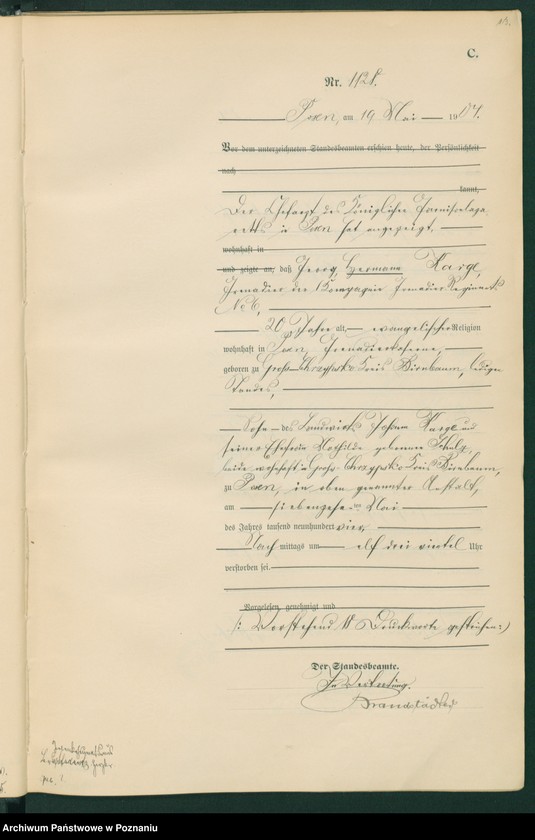 C.
Nr. 1121.
Posen, am 19 Mai 1904.
Vor dem unterzeichneten Standesbeamten erschien heute, der Persönlichkeit
nach
kannt,
Der Chefarzt des Königlichen Garnisonlaza
retts in Posen hat angezeigt,
wohnhaft in
und zeigte an, daß Georg Hermann Karge,
Grenadier der Kompagnie Grenadier Regiments
No 6,
20 Jahre alt, evangelischer Religion
wohnhaft in Posen, Grenadierkaserne,
geboren zu Groß Chrzypsko Kreis Birnbaum, ledigen
Standes,
Sohn des Landwirths Johann Karge und
seiner Ehefrau Mathilde geborener Schulz,
beide wohnhaft in Groß Chrzypsko Kreis Birnbaum,
zu Posen, in oben genannter Anstalt,
am siebenzehnten Mai
des Jahres tausend neunhundert vier
Nachmittags um elf drei viertel Uhr
verstorben sei.
Vorgelesen, genehmigt und
(: Vorstehend Druckworte gestrichen :)
Der Standesbeamte.
In Vertretung.
Brandstädter
Archiwum Państwowe w Poznaniu